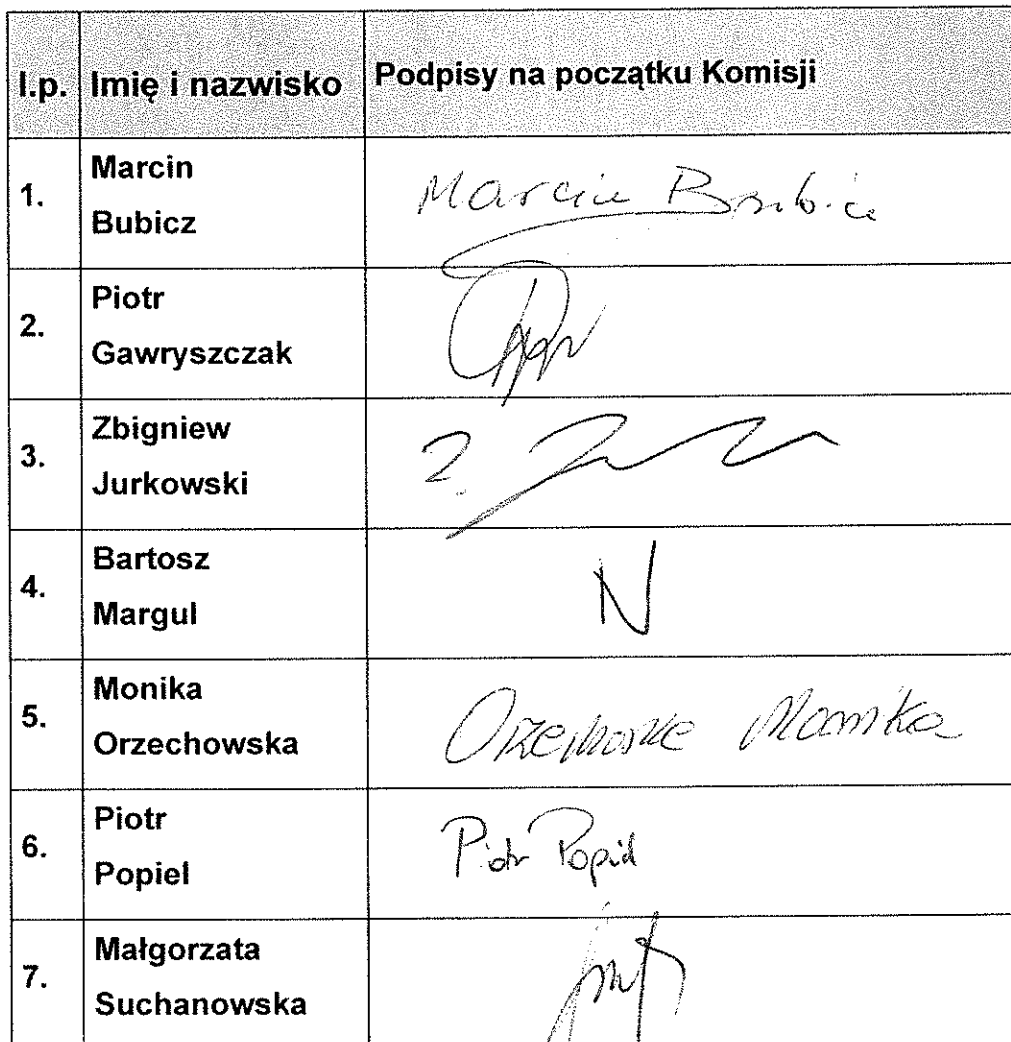 l.p. Imię i nazwisko Podpisy na początku Komisji
1. Marcin
Bubicz
Marcin Bubicz
2. Piotr
Gawryszczak
3. Zbigniew
Jurkowski
Z.
4. Bartosz
Margul
N
5. Monika
Orzechowska
Monika
6. Piotr
Popiel
Piotr Popiel
7. Małgorzata
Suchanowska